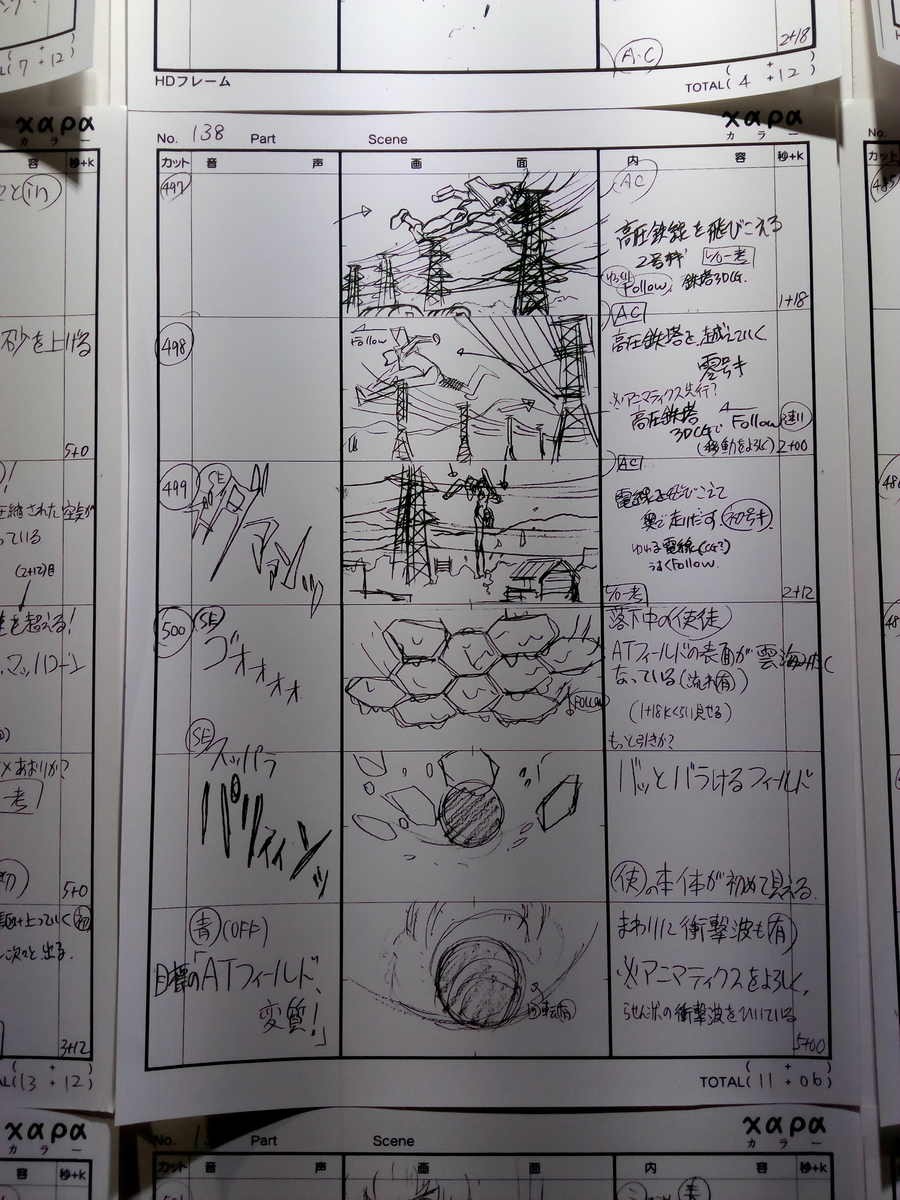 2+18
A・C
HDフレーム
TOTAL( 4 + 12 )
L( 7 + 12 )
χαρα
カラー
No. 138 Part Scene
カット 音 声 画 面 内 容 秒+k
497
AC
高圧鉄線を飛びこえる
2号機
Follow 鉄塔3DCG.
1+18
498
Follow
AC
高圧鉄塔を越えていく
零号キ
※アニマティクス先行?
高圧鉄塔 Follow 速い
3DCGで
(移動をよろしく)
2+00
499
SE
AC
電線を飛びこえて
奥で走りだす 初号キ
ゆれる電線(CG?)
うすくFollow.
2+12
500
SE
ゴオォォォ
FOLLOW
落下中の 使徒
ATフィールドの表面が雲海みたく
なっている(流れ有)
(1+18kくらい見せる)
もっと引きか?
SE
スッパラ
バッとバラけるフィールド
使の本体が初めて見える.
青 (OFF)
「目標のATフィールド、
変質!」
回転有
まわりに衝撃波も有
※アニマティクスをよろしく,
らせん状の衝撃波をひいている
5+00
TOTAL( 11 + 06 )
χαρα
カラー
No. Part Scene
カット 音 声 画 面 内 容 秒+k
χαρα
カラー
容 秒+k
in
砂を上げる
5+0
圧縮された空気が
っている
(2+12)目
を超える!
あおりか?
考
5+0
3+12
AL( 13 + 12 )
χαρα
カラー
容 秒+k
No.
カット